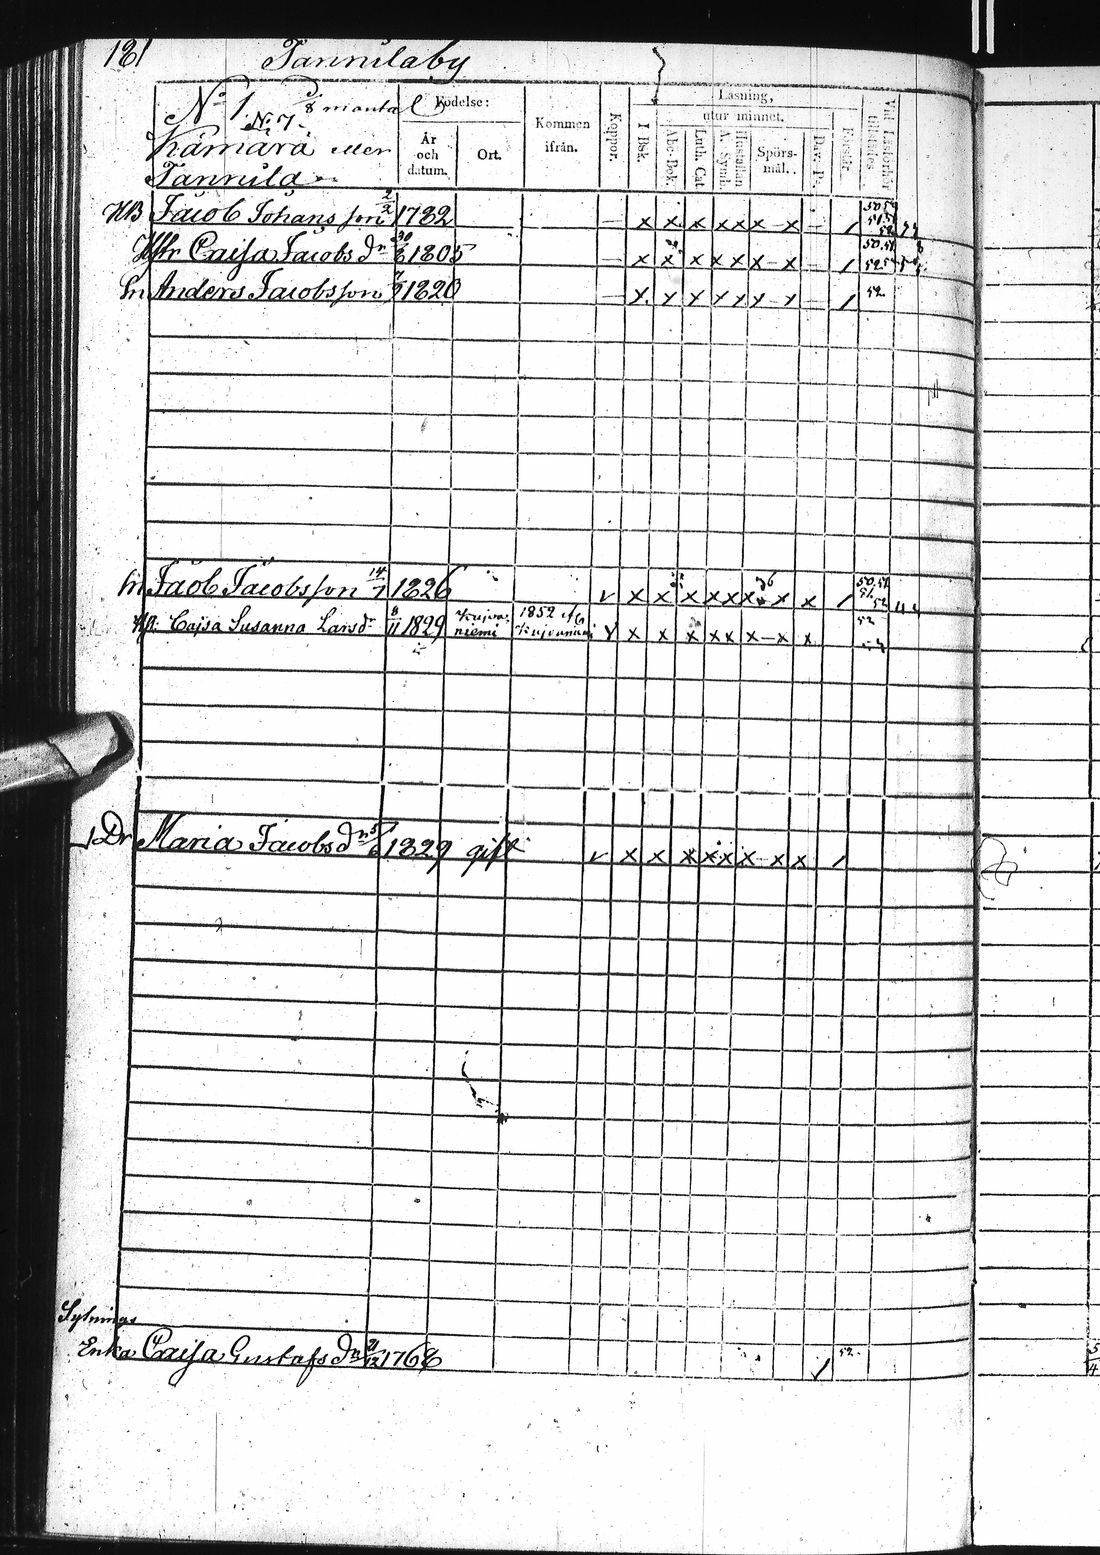 181 Tannilaby
No 1. 3/8 mantal
No 7.
Kämärä eller
Tannila
Födelse:
År och datum.
Ort.
Kommen ifrån.
Koppor.
Läsning,
utur minnet.
I Bok.
Abc-Bok.
Luth. Cat.
A. Symb.
Hustaflan
Spörs-mål.
Dav. Ps.
Förstår.
Vid Läsförhör
HB Jacob Johansson 2/2 1782 — x x x x x x — x — / 50 51 52
Hstr Caisa Jacobs dr 30/6 1805 — x x x x x x — x — / 50. 51. 52
Sn Anders Jacobsson 1820 — x x x x x x — x — / 52
Sn Jacob Jacobsson 14/7 1826 v x x x x x x x x / 50. 51. 52
Hu. Cajsa Susanna Larsdr 8/11 1829 Kujva-niemi 1852 v x x x x x x — x x 52
Dr Maria Jacobs dr 1829 gift v x x x x x x — x x /
Sytnings
Enka Caisa Gustafs dr 21/12 1768 52.